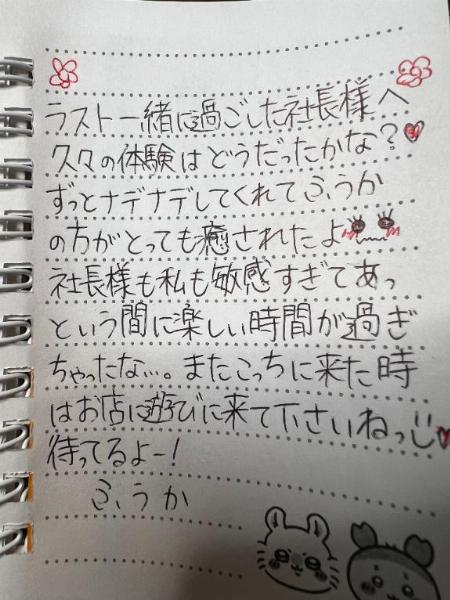 ラスト一緒に過ごした社長様へ
久々の体験はどうだったかな?
ずっとナデナデしてくれてふうか
の方がとっても癒されたよ
社長様も私も敏感すぎてあっ
という間に楽しい時間が過ぎ
ちゃったな…。またこっちに来た時
はお店に遊びに来て下さいねっ
待ってるよー!
ふうか